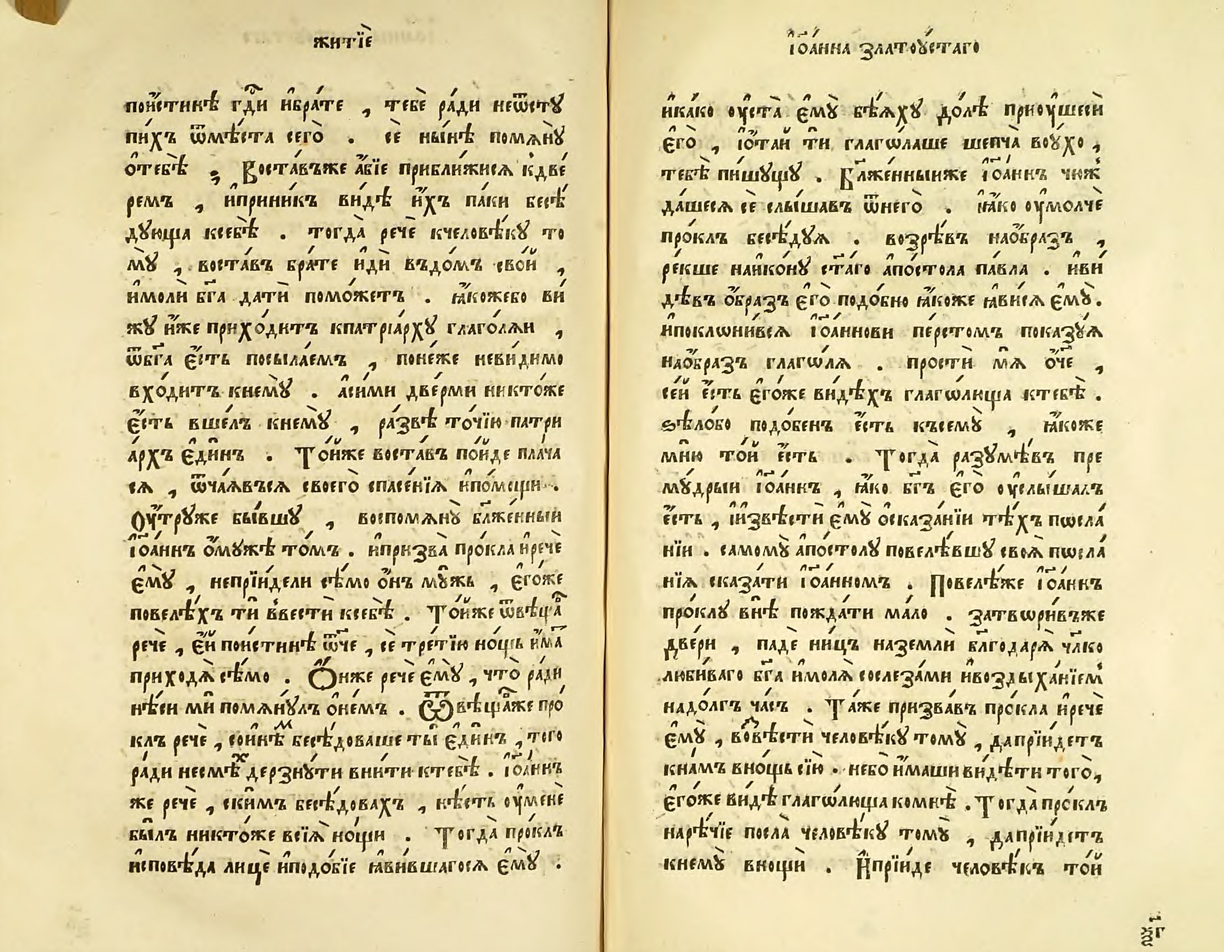 житїѐ
пои́стинѣ гд҃и и҆бра́те , тебѐ ра́ди неѿстꙋ
пи́хъ ѿмѣ́ста сегѡ̀ . сѐ ны́нѣ помѧнꙋ̀
ѻ҆тебѣ̀ , Воста́въже а҆́бїе прибли́жисѧ кдве́
ремъ , и҆прини́къ ви́дѣ и҆́хъ па́ки бесѣ́
дꙋюща ксебѣ̀ . тогда̀ речѐ кчеловѣ́кꙋ то
мꙋ̀ , воста́въ бра́те и҆дѝ въдо́мъ сво́й ,
и҆молѝ бг҃а да́ти помо́жетъ . ꙗ҆́кожебо ви́
жꙋ и҆́же прихо́дитъ кпатрїа́рхꙋ глаго́лѧи ,
ѿбг҃а є҆́сть посыла́емъ , поне́же неви́димо
вхо́дитъ кнемꙋ̀ . а҆си́ми две́рми никто́же
є҆́сть вше́лъ кнемꙋ̀ , ра́звѣ то́чїю патри
а́рхъ є҆ди́нъ . То́йже воста́въ по́йде пла́ча
сѧ , ѿча́ѧвъсѧ своего̀ спасе́нїѧ и҆по́мощи .
Оу҆́трꙋже бы́вшꙋ , воспомѧнꙋ̀ бл҃же́нный
і҆ѡа́ннъ ѻ҆мꙋ́жѣ то́мъ . и҆призва̀ про́кла и҆речѐ
є҆мꙋ̀ , непрїи́дели сѣ́мо ѻ҆́нъ мꙋ́жь , є҆го́же
повелѣ́хъ тѝ ввестѝ ксебѣ̀ . То́йже ѿвѣща̀
речѐ , є҆́й пои́стинѣ ѿче , сѐ тре́тїю но́щь и҆́ма
приходѧ̀ сѣ́мо . Ѻ҆́нже речѐ є҆мꙋ̀ , что̀ ра́ди
нѣ́си мѝ помѧнꙋ́лъ ѻ҆не́мъ . Ѿвѣща́же про
клъ речѐ , сои́нѣм бесѣ́доваше ты̀ є҆ди́нъ , того̀
ра́ди несмѣ́х де́рзнꙋти вни́ти ктебѣ̀ . і҆ѡа́ннъ
же речѐ , ски́мъ бесѣ́довахъ , нѣ́сть оу҆менѐ
бы́лъ никто́же всїѧ̀ но́щи . Тогда̀ про́клъ
и҆сповѣ́да лицѐ и҆подо́бїе ꙗ҆ви́вшагосѧ є҆мꙋ̀ .
і҆ѡа́нна златоꙋ́стаго
и҆ка́ко оу҆ста̀ є҆мꙋ̀ бѣ́ѧхꙋ до́лѣ приоу҆́шесѝ
є҆гѡ̀ , і҆ѻта́й тѝ глаго́лаше шепча̀ воꙋ́хо ,
тебѣ̀ пи́шꙋщꙋ . Бл҃же́нныиже і҆ѡа́ннъ чюж
да́шесѧ сѐ слы́шавъ ѿнегѡ̀ . ꙗ҆́ко оу҆молчѐ
про́клъ бесѣ́дꙋѧ . возрѣ́въ нао́бразъ ,
ре́кше наи҆ко́нꙋ ст҃аго а҆по́стола па́вла . и҆ви́
дѣвъ ѻ҆́бразъ є҆гѡ̀ подо́бно ꙗ҆́коже ꙗ҆ви́сѧ є҆мꙋ̀ .
и҆поклони́всѧ і҆ѡа́ннови пе́рстомъ показꙋ́ѧ
нао́бразъ глаго́лѧ . простѝ мѧ̀ ѻ҆́че ,
се́й є҆́сть є҆го́же ви́дѣхъ глаго́люща ктебѣ̀ .
ѕѣ́лобо подо́бенъ є҆́сть късемꙋ̀ , ꙗ҆́коже
мню̀ то́й є҆́сть . Тогда̀ разꙋмѣ́въ пре
мꙋ́дрыи і҆ѡа́ннъ , ꙗ҆́ко бг҃ъ є҆гѡ̀ оу҆слы́шалъ
є҆́сть , и҆извѣсти̏ є҆мꙋ̀ ѻ҆сказа́нїи тѣ́хъ посла́
нїи . самомꙋ̀ а҆по́столꙋ повелѣ́вшꙋ своѧ̀ посла́
нїѧ сказа́ти і҆ѡа́нномъ . Повелѣ́же і҆ѡа́ннъ
про́клꙋ внѣ̀ пожда́ти ма́ло . затвори́въже
две́ри , падѐ ни́цъ наземлѝ бл҃годарѧ̀ чл҃ко
люби́ваго бг҃а и҆молѧ̀ сослеза́ми и҆воздыха́нїем
надо́лгъ ча́съ . Та́же призва́въ про́кла и҆речѐ
є҆мꙋ̀ , во́звѣсти человѣ́кꙋ томꙋ̀ , дапрїи́детъ
кна́мъ вно́щь сїю̀ . не́бо и҆́маши ви́дѣти того̀ ,
є҆го́же ви́дѣ глаго́люща комнѣ̀ . Тогда̀ про́клъ
нарѣ́чїе посла̀ человѣ́кꙋ томꙋ̀ , дапрїи́детъ
кнемꙋ̀ вно́щи . И҆прїи́де человѣ́къ то́й